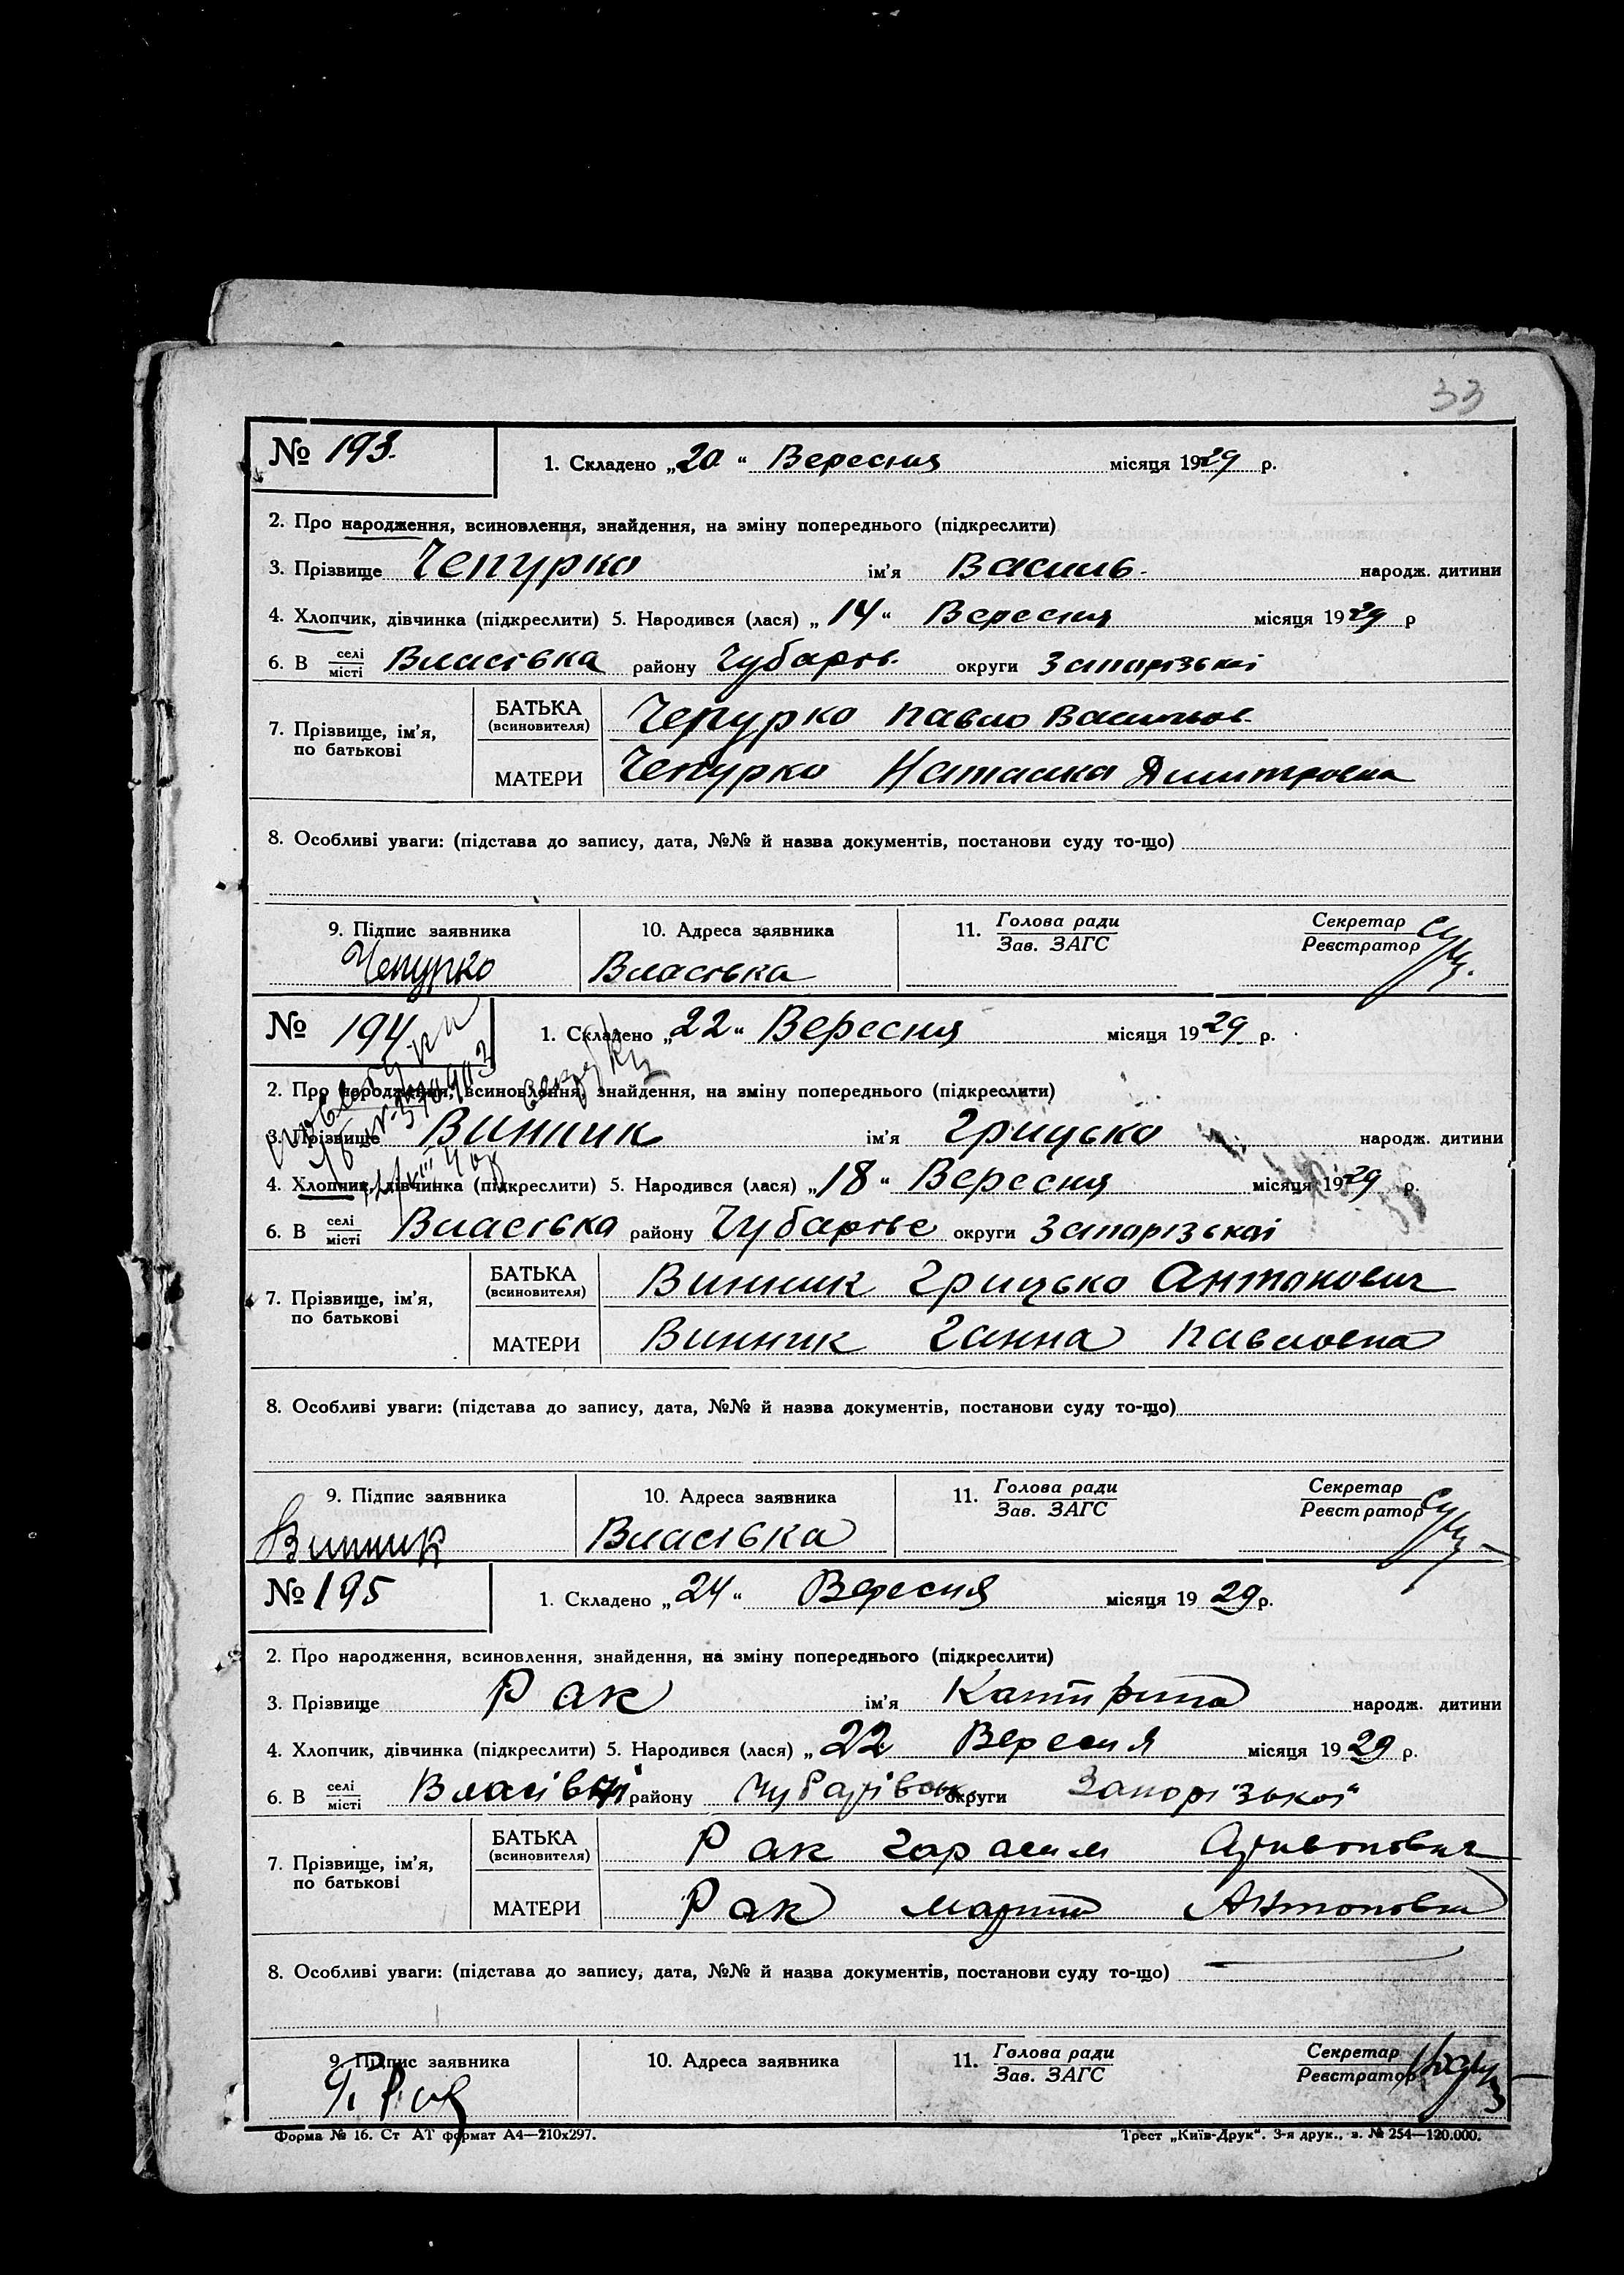 33
№ 193.
1. Складено „20“ Вересня місяця 1929 р.
2. Про народження, всиновлення, знайдення, на зміну попереднього (підкреслити)
3. Прізвище Чепурко ім'я Василь. народж. дитини
4. Хлопчик, дівчинка (підкреслити) 5. Народився (лася) „14“ Вересня місяця 1929 р
6. В селі/місті Власівка району Чубарів. округи Запорізької
7. Прізвище, ім'я, по батькові
БАТЬКА (всиновителя) Чепурко Павло Васильов.
МАТЕРИ Чепурко Наталка Дмитровна
8. Особливі уваги: (підстава до запису, дата, №№ й назва документів, постанови суду то-що)
9. Підпис заявника 10. Адреса заявника 11. Голова ради/Зав. ЗАГС Секретар/Реєстратор
Чепурко Власівка
№ 194
1. Складено „22“ Вересня місяця 1929 р.
2. Про народження, всиновлення, знайдення, на зміну попереднього (підкреслити)
3. Прізвище Винник ім'я Грицько народж. дитини
4. Хлопчик, дівчинка (підкреслити) 5. Народився (лася) „18“ Вересня місяця 1929 р.
6. В селі/місті Власівка району Чубарівс округи Запорізької
7. Прізвище, ім'я, по батькові
БАТЬКА (всиновителя) Винник Грицько Антонович
МАТЕРИ Винник Ганна Павловна
8. Особливі уваги: (підстава до запису, дата, №№ й назва документів, постанови суду то-що)
9. Підпис заявника 10. Адреса заявника 11. Голова ради/Зав. ЗАГС Секретар/Реєстратор
Винник Власівка
№ 195
1. Складено „24“ Вересня місяця 1929 р.
2. Про народження, всиновлення, знайдення, на зміну попереднього (підкреслити)
3. Прізвище Рак ім'я Катерина народж. дитини
4. Хлопчик, дівчинка (підкреслити) 5. Народився (лася) „22 Вересня місяця 1929 р.
6. В селі/місті Власівці району Чубарівськ. округи Запорізької
7. Прізвище, ім'я, по батькові
БАТЬКА (всиновителя) Рак Гарасим
МАТЕРИ Рак Марина Антоновна
8. Особливі уваги: (підстава до запису, дата, №№ й назва документів, постанови суду то-що)
9. Підпис заявника 10. Адреса заявника 11. Голова ради/Зав. ЗАГС Секретар/Реєстратор
Г. Рак
Форма № 16. Ст АТ формат А4—210х297. Трест „Київ-Друк“. 3-я друк., з. № 254—120.000.